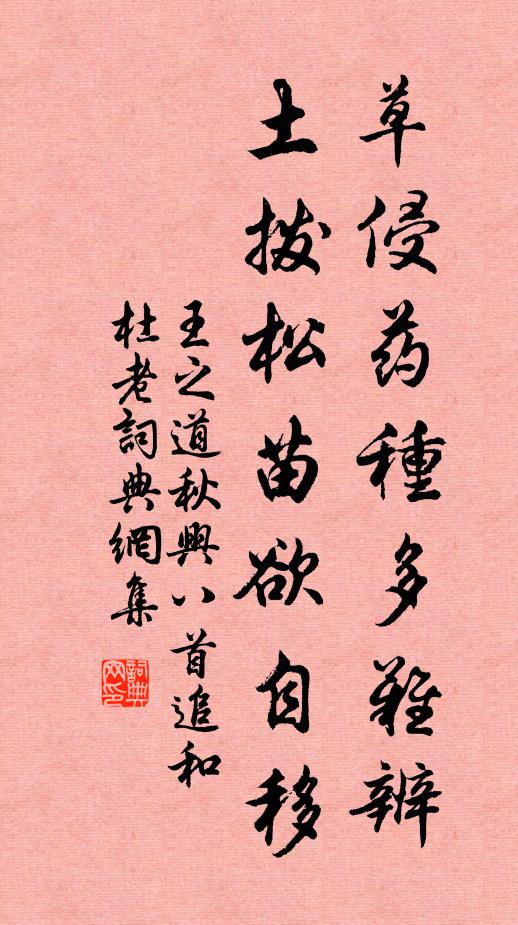 草侵药種多難辨
土拨松苗欲自移
王之道秋興八首追和
杜老詞典網集
詞典网印